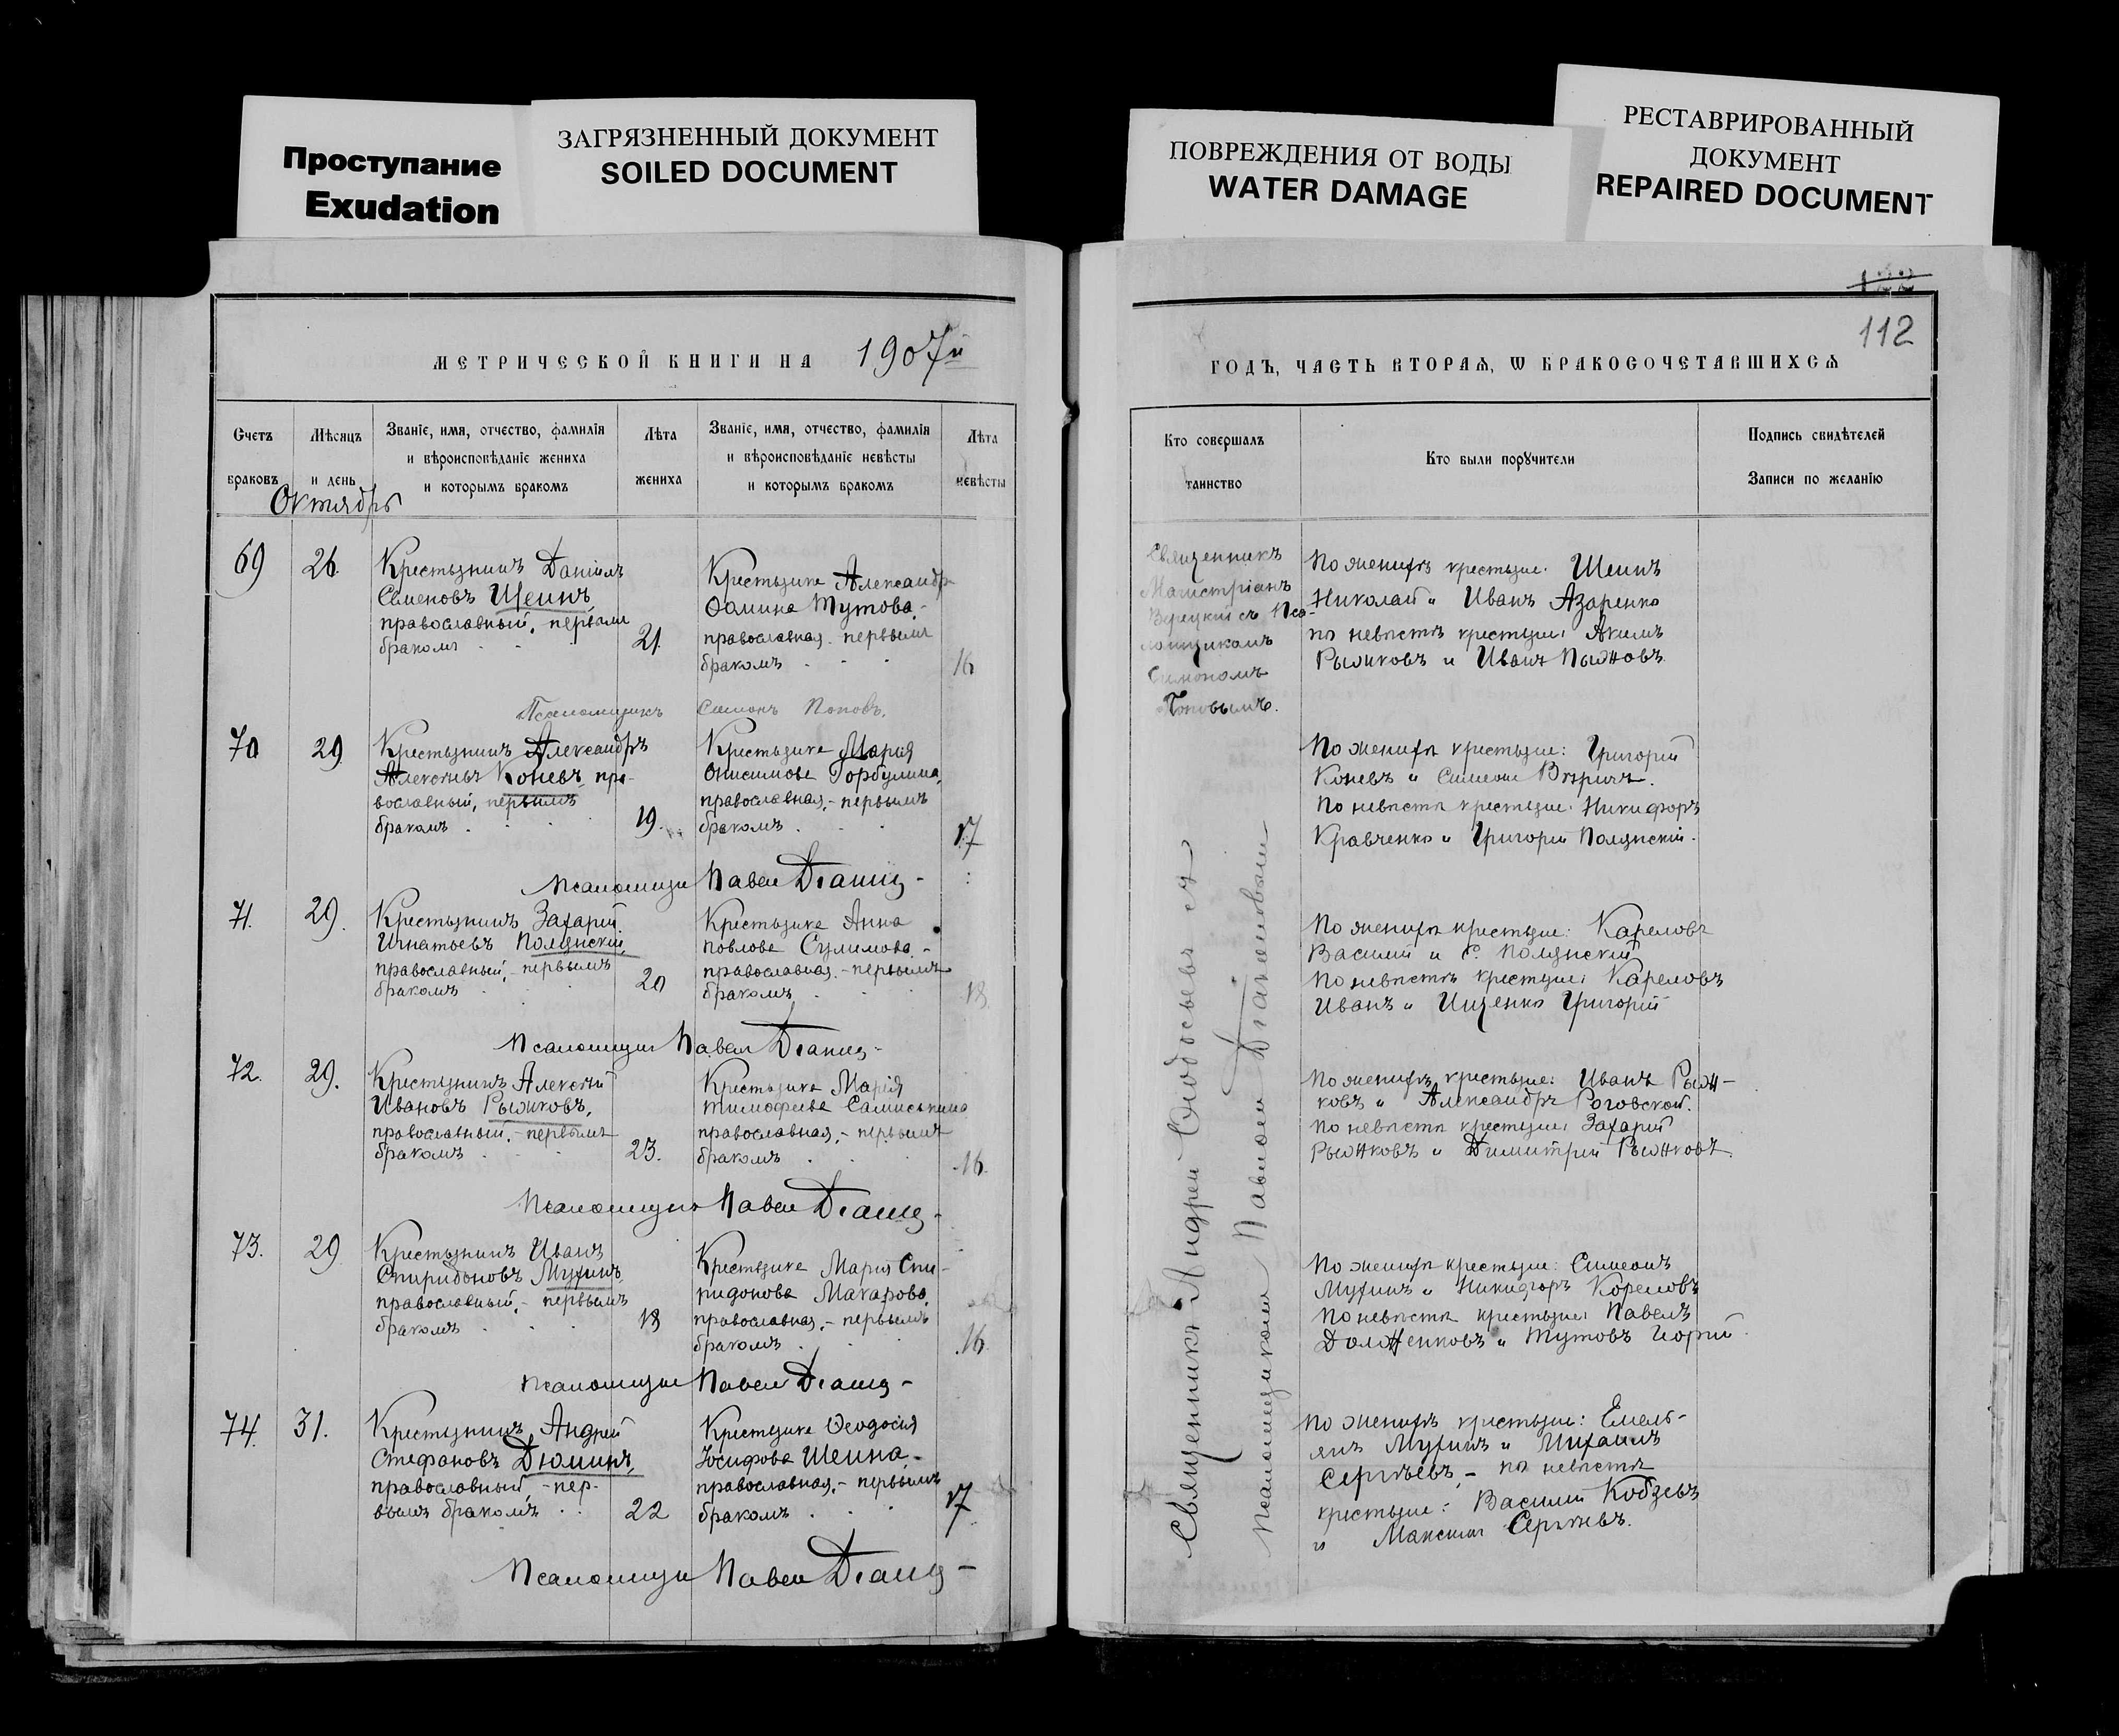 Проступание
Exudation
ЗАГРЯЗНЕННЫЙ ДОКУМЕНТ
SOILED DOCUMENT
ПОВРЕЖДЕНИЯ ОТ ВОДЫ
WATER DAMAGE
РЕСТАВРИРОВАННЫЙ
ДОКУМЕНТ
REPAIRED DOCUMENT
МЕТРИЧЕСКОЙ КНИГИ НА 1907й
Счетъ
браковъ
Мѣсяцъ
и день
Званіе, имя, отчество, фамилія
и вѣроисповѣданіе жениха
и которымъ бракомъ
Лѣта
жениха
Званіе, имя, отчество, фамилія
и вѣроисповѣданіе невѣсты
и которымъ бракомъ
Лѣта
невѣсты
Октябрь
69
26.
Крестьянинъ Даніилъ
Семеновъ Шеинъ,
православный, первымъ
бракомъ
21.
Крестьянка Александра
Фомина Тутова
православная первымъ
бракомъ
16
Псаломщикъ Симонъ Поповъ.
70
29
Крестьянинъ Александръ
Алексѣевъ Коневъ, пра-
вославный, первымъ
бракомъ
19.
Крестьянка Марія
Онисимова Горбулина,
православная, - первымъ
бракомъ
17
Псаломщикъ Павелъ
71.
29.
Крестьянинъ Захарій
Игнатьевъ Полянскій,
православный, - первымъ
бракомъ
20
Крестьянка Анна
Павлова Сулимова. -
православная. - первымъ
бракомъ
18
Псаломщикъ Павелъ
72.
29.
Крестьянинъ Алексѣй
Ивановъ Рыжковъ,
православный, - первымъ
бракомъ
23.
Крестьянка Марія
Тимофеева
православная, - первымъ
бракомъ
16.
Псаломщикъ Павелъ
73.
29
Крестьянинъ Иванъ
Спиридоновъ Мухинъ,
православный, - первымъ
бракомъ
18
Крестьянка Марія Спи-
ридонова Макарова,
православная, - первымъ
бракомъ
16.
Псаломщикъ Павелъ
74.
31.
Крестьянинъ Андрей
Стефановъ Дюминъ,
православный - пер-
вымъ бракомъ
22
Крестьянка Ѳеодосія
Іосифова Шеина -
православная, - первымъ
бракомъ
17
Псаломщикъ Павелъ
122
112
ГОДЪ, ЧАСТЬ ВТОРАЯ, Ѡ БРАКОСОЧЕТАВШИХСЯ
Кто совершалъ
таинство
Кто были порꙋчители
Подпись свидѣтелей
Записи по желанію
Священникъ
съ Пса-
ломщикомъ
Симономъ
Поповымъ.
Священникъ Андрей Ѳеодосьевъ съ
Псаломщикомъ Павломъ
По женихѣ крестьяне: Шеинъ
Николай и Иванъ Азаренко
по невѣстѣ крестьяне: Акимъ
Рыжковъ и Иванъ Пыжовъ.
По женихѣ крестьяне: Григорій
Коневъ и Симеонъ
По невѣстѣ крестьяне: Никифоръ
Кравченко и Григорій Полянскій.
По женихѣ крестьяне: Кареловъ
Василій и С. Полянскій
По невѣстѣ крестьяне: Кареловъ
Иванъ и Ищенко Григорій
По женихѣ крестьяне: Иванъ Рыж-
ковъ и Александръ Роговской.
По невѣстѣ крестьяне: Захарій
Рыжковъ и Димитрій Рыжковъ.
По женихѣ крестьяне: Симеонъ
Мухинъ и Никифоръ Кореловъ
По невѣстѣ крестьяне: Павелъ
Долженковъ и Тутовъ
По женихѣ крестьяне: Емель-
янъ Мухинъ и Михаилъ
Сергѣевъ, - по невѣстѣ
крестьяне: Василій Кобзевъ
и Максимъ Сергѣевъ.